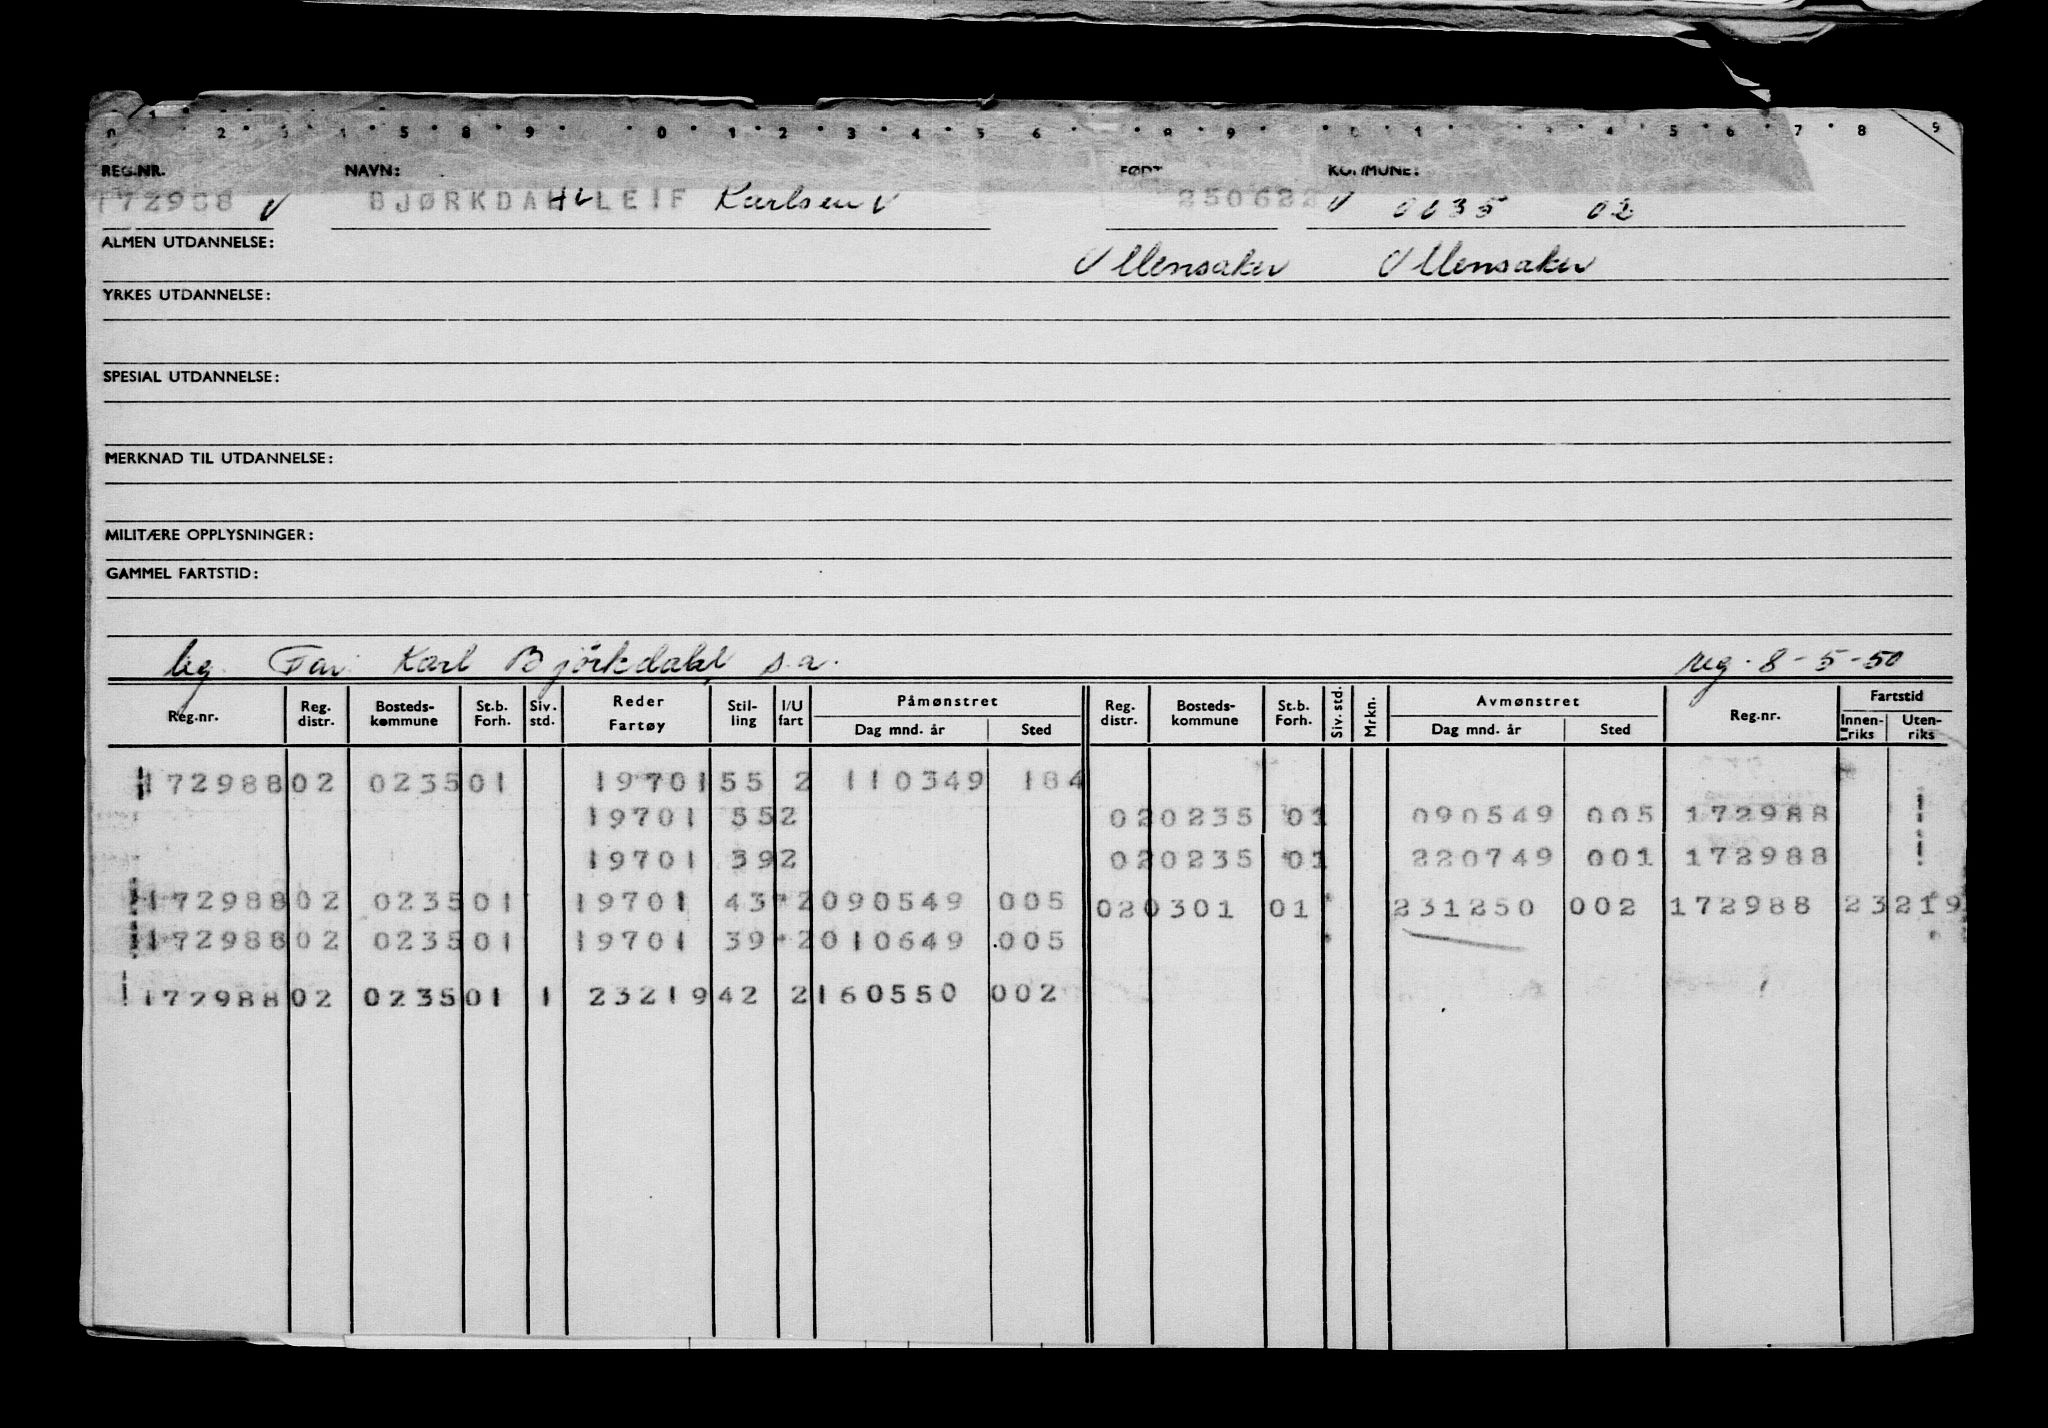 REG.NR. NAVN: FØDT KOMMUNE:
172988 v BJØRKDAHL LEIF Karlsen v 250622 v 0235 02
ALMEN UTDANNELSE: Ullensaker Ullensaker
YRKES UTDANNELSE:
SPESIAL UTDANNELSE:
MERKNAD TIL UTDANNELSE:
MILITÆRE OPPLYSNINGER:
GAMMEL FARTSTID:
leg. Far: Karl Bjørkdahl, s.a. reg. 8-5-50
Reg.nr. Reg. distr. Bosteds-kommune St.b. Forh. Siv. std. Reder Fartøy Stil-ling I/U fart Påmønstret Dag mnd. år Sted Reg. distr. Bosteds-kommune St.b. Forh. Siv. std. Mrkn. Avmønstret Dag mnd. år Sted Reg.nr. Fartstid Innen-riks Uten-riks
172988 02 0235 01 19701 55 2 110349 184
19701 55 2 02 0235 01 090549 005 172988
19701 39 2 02 0235 01 220749 001 172988
172988 02 0235 01 19701 43 2 090549 005 02 0301 01 231250 002 172988 23219
172988 02 0235 01 19701 39 2 010649 005
172988 02 0235 01 1 23219 42 2 160550 002